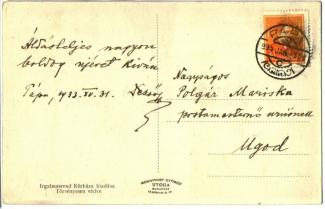 Áldásteljes nagyon
boldog újévet kíván
Pápa, 1933. XII. 31. Dezső
Nagyságos
Polgár Mariska
postamesternő úrnőnek
Ugod
Irgalmasrend Kórháza kiadása
Törvényesen védve
UTÓDA
BUDAPEST